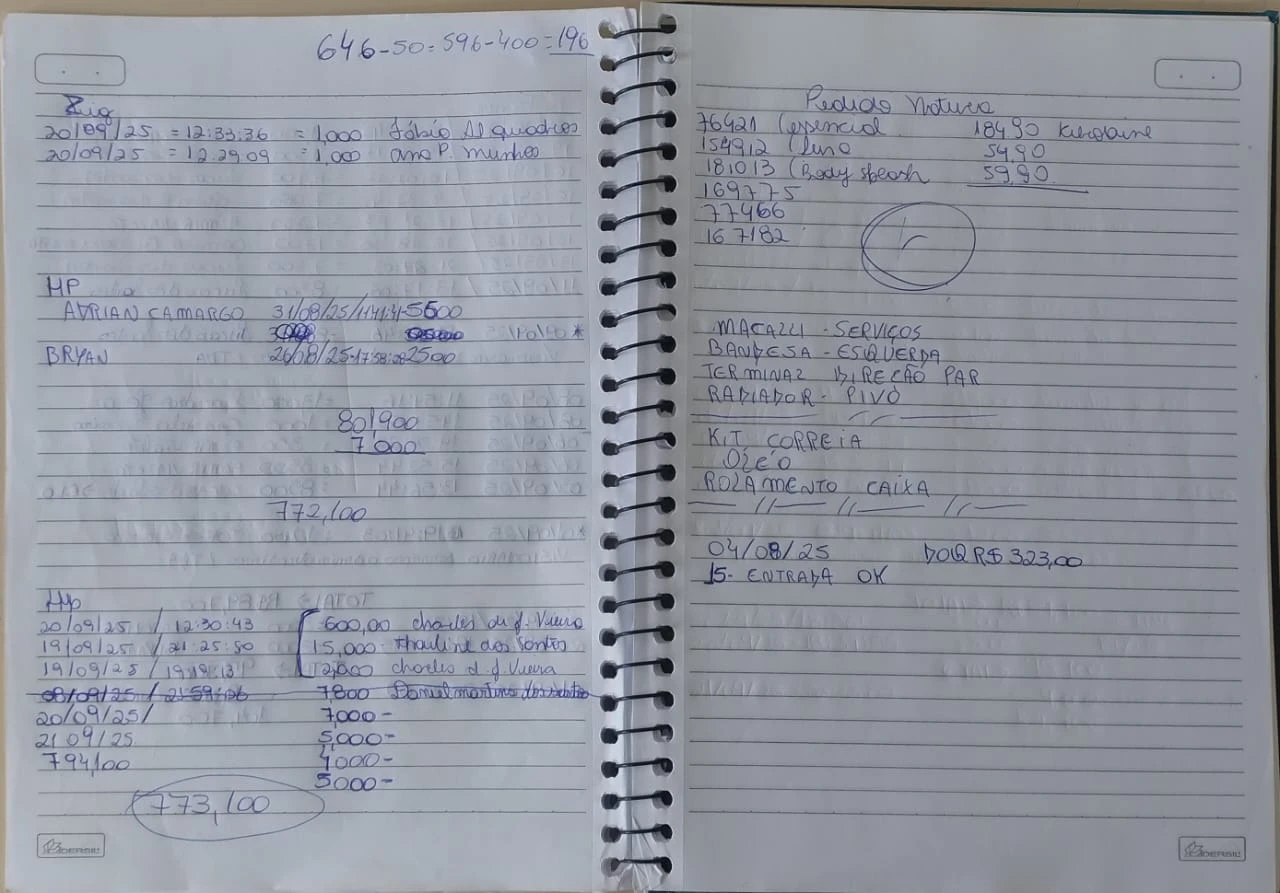 646-50=596-400=196
Zig
20/09/25 =12:33:36 =1,000 Fábio Al quadros
20/09/25 =12:29:09 =1,000 ana P. Munhos
HP
ADRIAN CAMARGO 31/08/25/ 5500
BRYAN 26/08/25-17:58:08 2500
801,900
7,000
772,100
Hp
20/09/25 / 12:30:43 600,00 charles de J. Vieira
19/09/25 / 21:25:50 15,000- Thauline dos Santos
19/09/25 / 19:19:13 12,000 charles d J. Vieira
08/09/25 / 21:59:26 7800 Daniel martins dos santos
20/09/25/ 7,000-
21 09/25 5,000-
794,100 4000-
5000-
773,100
DERSIL
Pedido Natura
76421 (essencial 184,90 Kerolaine
154912 (Luna 54,90
181013 (Body splash 59,90
169775
77466
167182
MACALLI - SERVIÇOS
BANDESA - ESQUERDA
TERMINAL DIREÇÃO PAR
RADIADOR - PIVÔ
KIT CORREIA
ÓLEO
ROLAMENTO CAIXA
04/08/25 DOQ R$ 323,00
15- ENTRADA OK
DERSIL